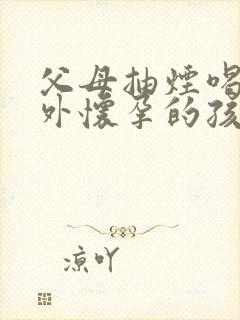 父母抽煙喝
外懷孕的孩
涼吖